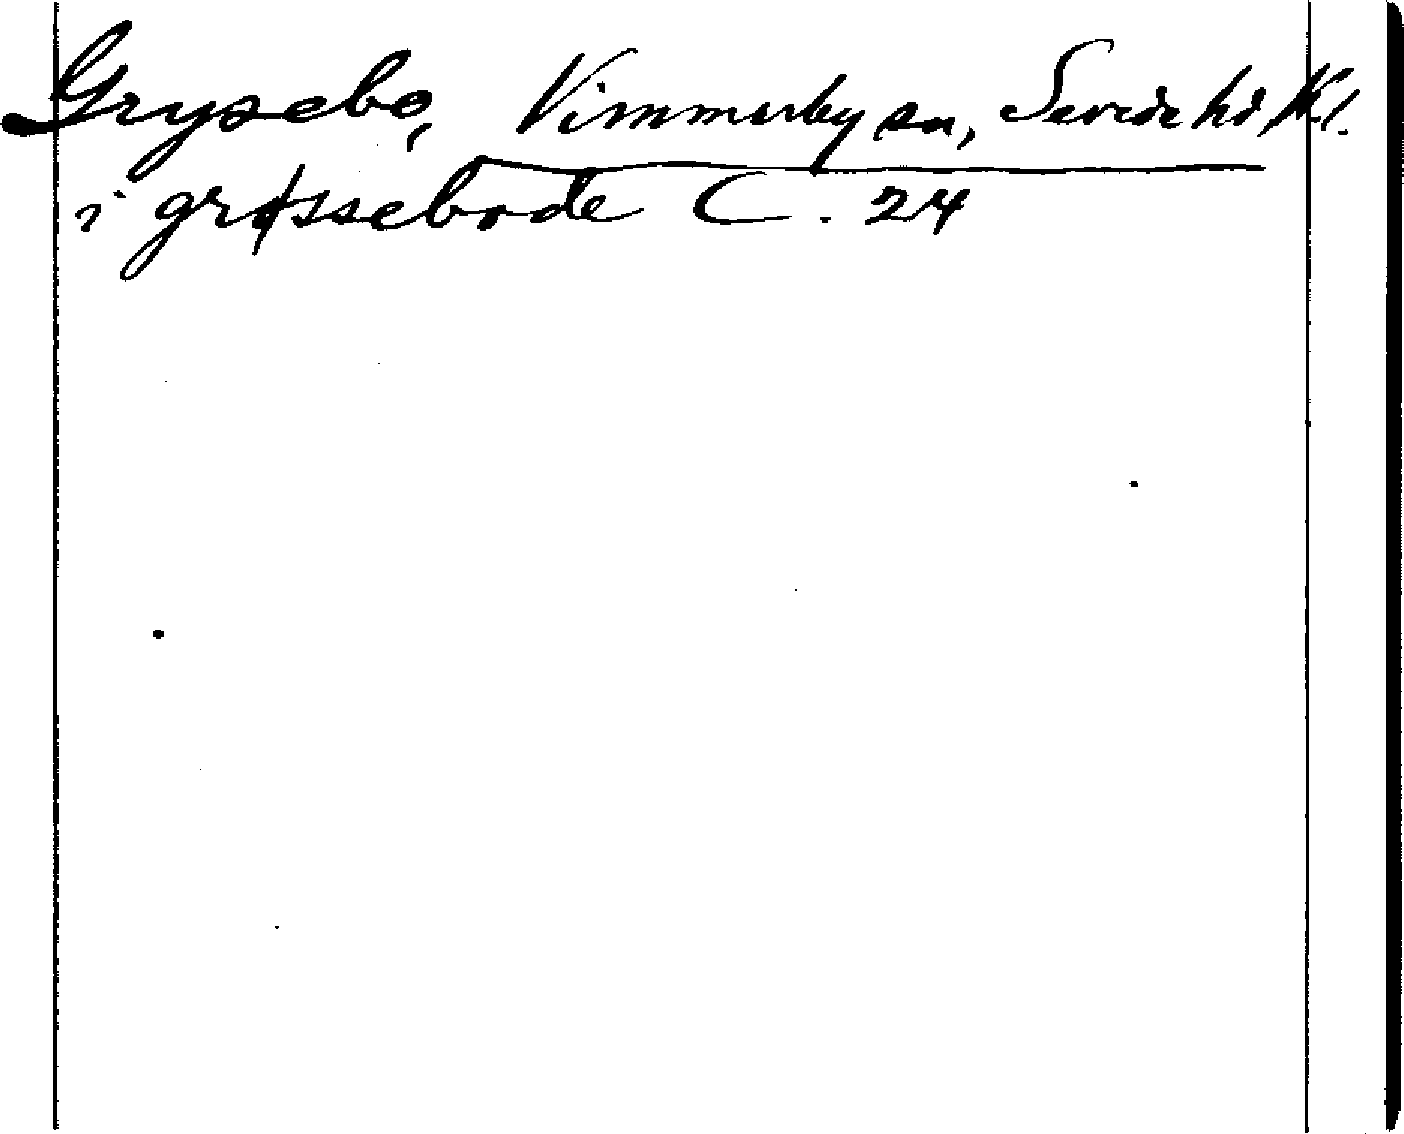 Grysebo, Vimmerby sn, Sevede hd, Kl.
i grøssebode C. 24